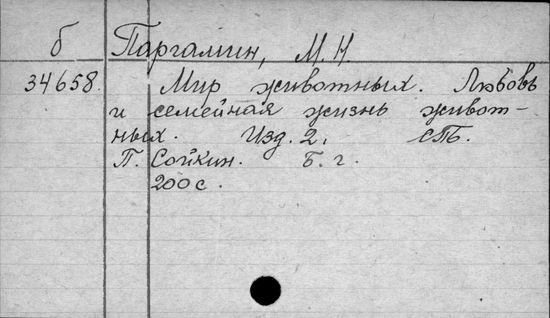 б Паргамин, М. Н.
34658. Мир животных. Любовь
и семейная жизнь живот-
ных. Изд. 2. СПб.
П. Сойкин. Б. г.
200 с.